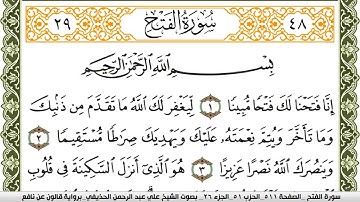 ٢٩ سُورَةُ الفَتْحِ ٤٨
بِسْمِ اللَّهِ الرَّحْمَٰنِ الرَّحِيمِ
إِنَّا فَتَحْنَا لَكَ فَتْحًا مُّبِينًا ١ لِّيَغْفِرَ لَكَ اللَّهُ مَا تَقَدَّمَ مِن ذَنۢبِكَ
وَمَا تَأَخَّرَ وَيُتِمَّ نِعْمَتَهُۥ عَلَيْكَ وَيَهْدِيَكَ صِرَٰطًا مُّسْتَقِيمًا ٢
وَيَنصُرَكَ اللَّهُ نَصْرًا عَزِيزًا ٣ هُوَ الَّذِىٓ أَنزَلَ السَّكِينَةَ فِى قُلُوبِ
سورة الفتح _ الصفحة ٥١١ _ الحزب ٥١ _ الجزء ٢٦ _ بصوت الشيخ علي عبد الرحمن الحذيفي _ برواية قالون عن نافع